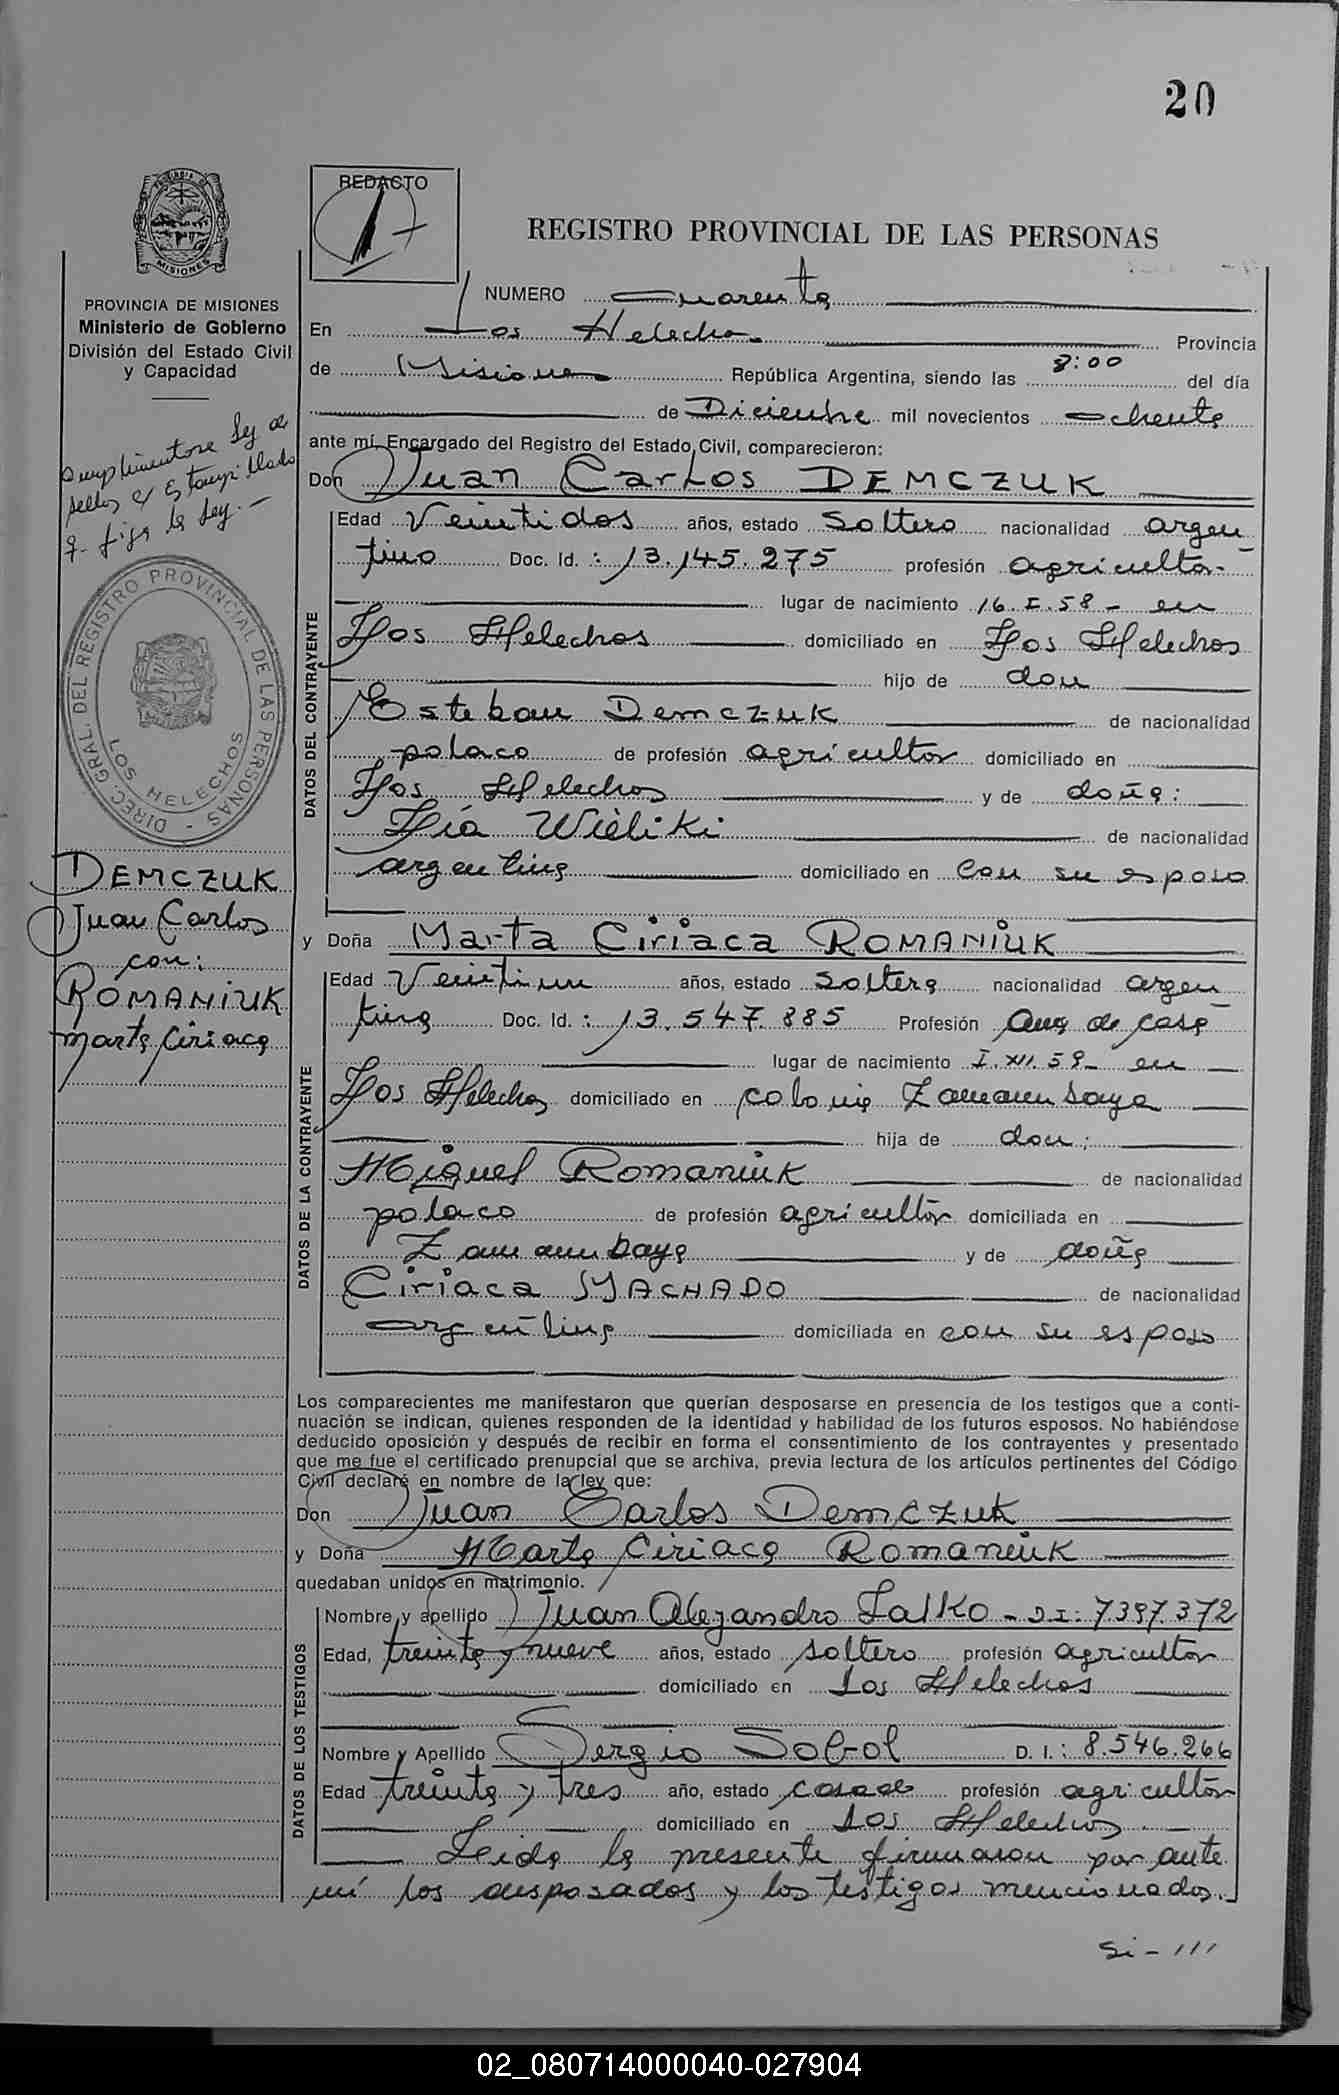 20
PROVINCIA DE
MISIONES
REDACTO
REGISTRO PROVINCIAL DE LAS PERSONAS
PROVINCIA DE MISIONES
Ministerio de Gobierno
División del Estado Civil
y Capacidad
Cumplimentose ley de
sellos c/ Estampillado
q. fija la ley.-
DIREC. GRAL. DEL REGISTRO PROVINCIAL DE LAS PERSONAS -
LOS HELECHOS
DEMCZUK
Juan Carlos
con:
ROMANIUK
Marta Ciriaca
NUMERO cuarenta
En Los Helechos Provincia
de Misiones República Argentina, siendo las 8:00 del día
de Diciembre mil novecientos ochenta
ante mí, Encargado del Registro del Estado Civil, comparecieron:
Don Juan Carlos DEMCZUK
DATOS DEL CONTRAYENTE
Edad Veintidos años, estado Soltero nacionalidad argen
tino Doc. Id. : 13.145.275 profesión agricultor
lugar de nacimiento 16.I.58- en
Los Helechos domiciliado en Los Helechos
hijo de don
Esteban Demczuk de nacionalidad
polaco de profesión agricultor domiciliado en
Los Helechos y de doña:
Lía Wieliki de nacionalidad
argentina domiciliado en con su esposo
y Doña Marta Ciriaca ROMANIUK
DATOS DE LA CONTRAYENTE
Edad Veintiun años, estado Soltera nacionalidad argen
tina Doc. Id. : 13.547.885 Profesión Ama de casa
lugar de nacimiento I.XII.59- en
Los Helechos domiciliado en colonia Zamambaya
hija de don:
Miguel Romaniuk de nacionalidad
polaco de profesión agricultor domiciliada en
Zamambaya y de doña
Ciriaca MACHADO de nacionalidad
argentina domiciliada en con su esposo
Los comparecientes me manifestaron que querían desposarse en presencia de los testigos que a conti-
nuación se indican, quienes responden de la identidad y habilidad de los futuros esposos. No habiéndose
deducido oposición y después de recibir en forma el consentimiento de los contrayentes y presentado
que me fue el certificado prenupcial que se archiva, previa lectura de los artículos pertinentes del Código
Civil declaré en nombre de la ley que:
Don Juan Carlos Demczuk
y Doña Marta Ciriaca Romaniuk
quedaban unidos en matrimonio.
DATOS DE LOS TESTIGOS
Nombre y apellido Juan Alejandro Lalko - DI: 7397372
Edad, treinta y nueve años, estado soltero profesión agricultor
domiciliado en Los Helechos
Nombre y Apellido Sergio Sobol D. I.: 8.546.266
Edad treinta y tres año, estado casado profesión agricultor
domiciliado en Los Helechos
Leida la presente firmaron por ante
mí los desposados y los testigos mencionados.
Si - ///
02_080714000040-027904